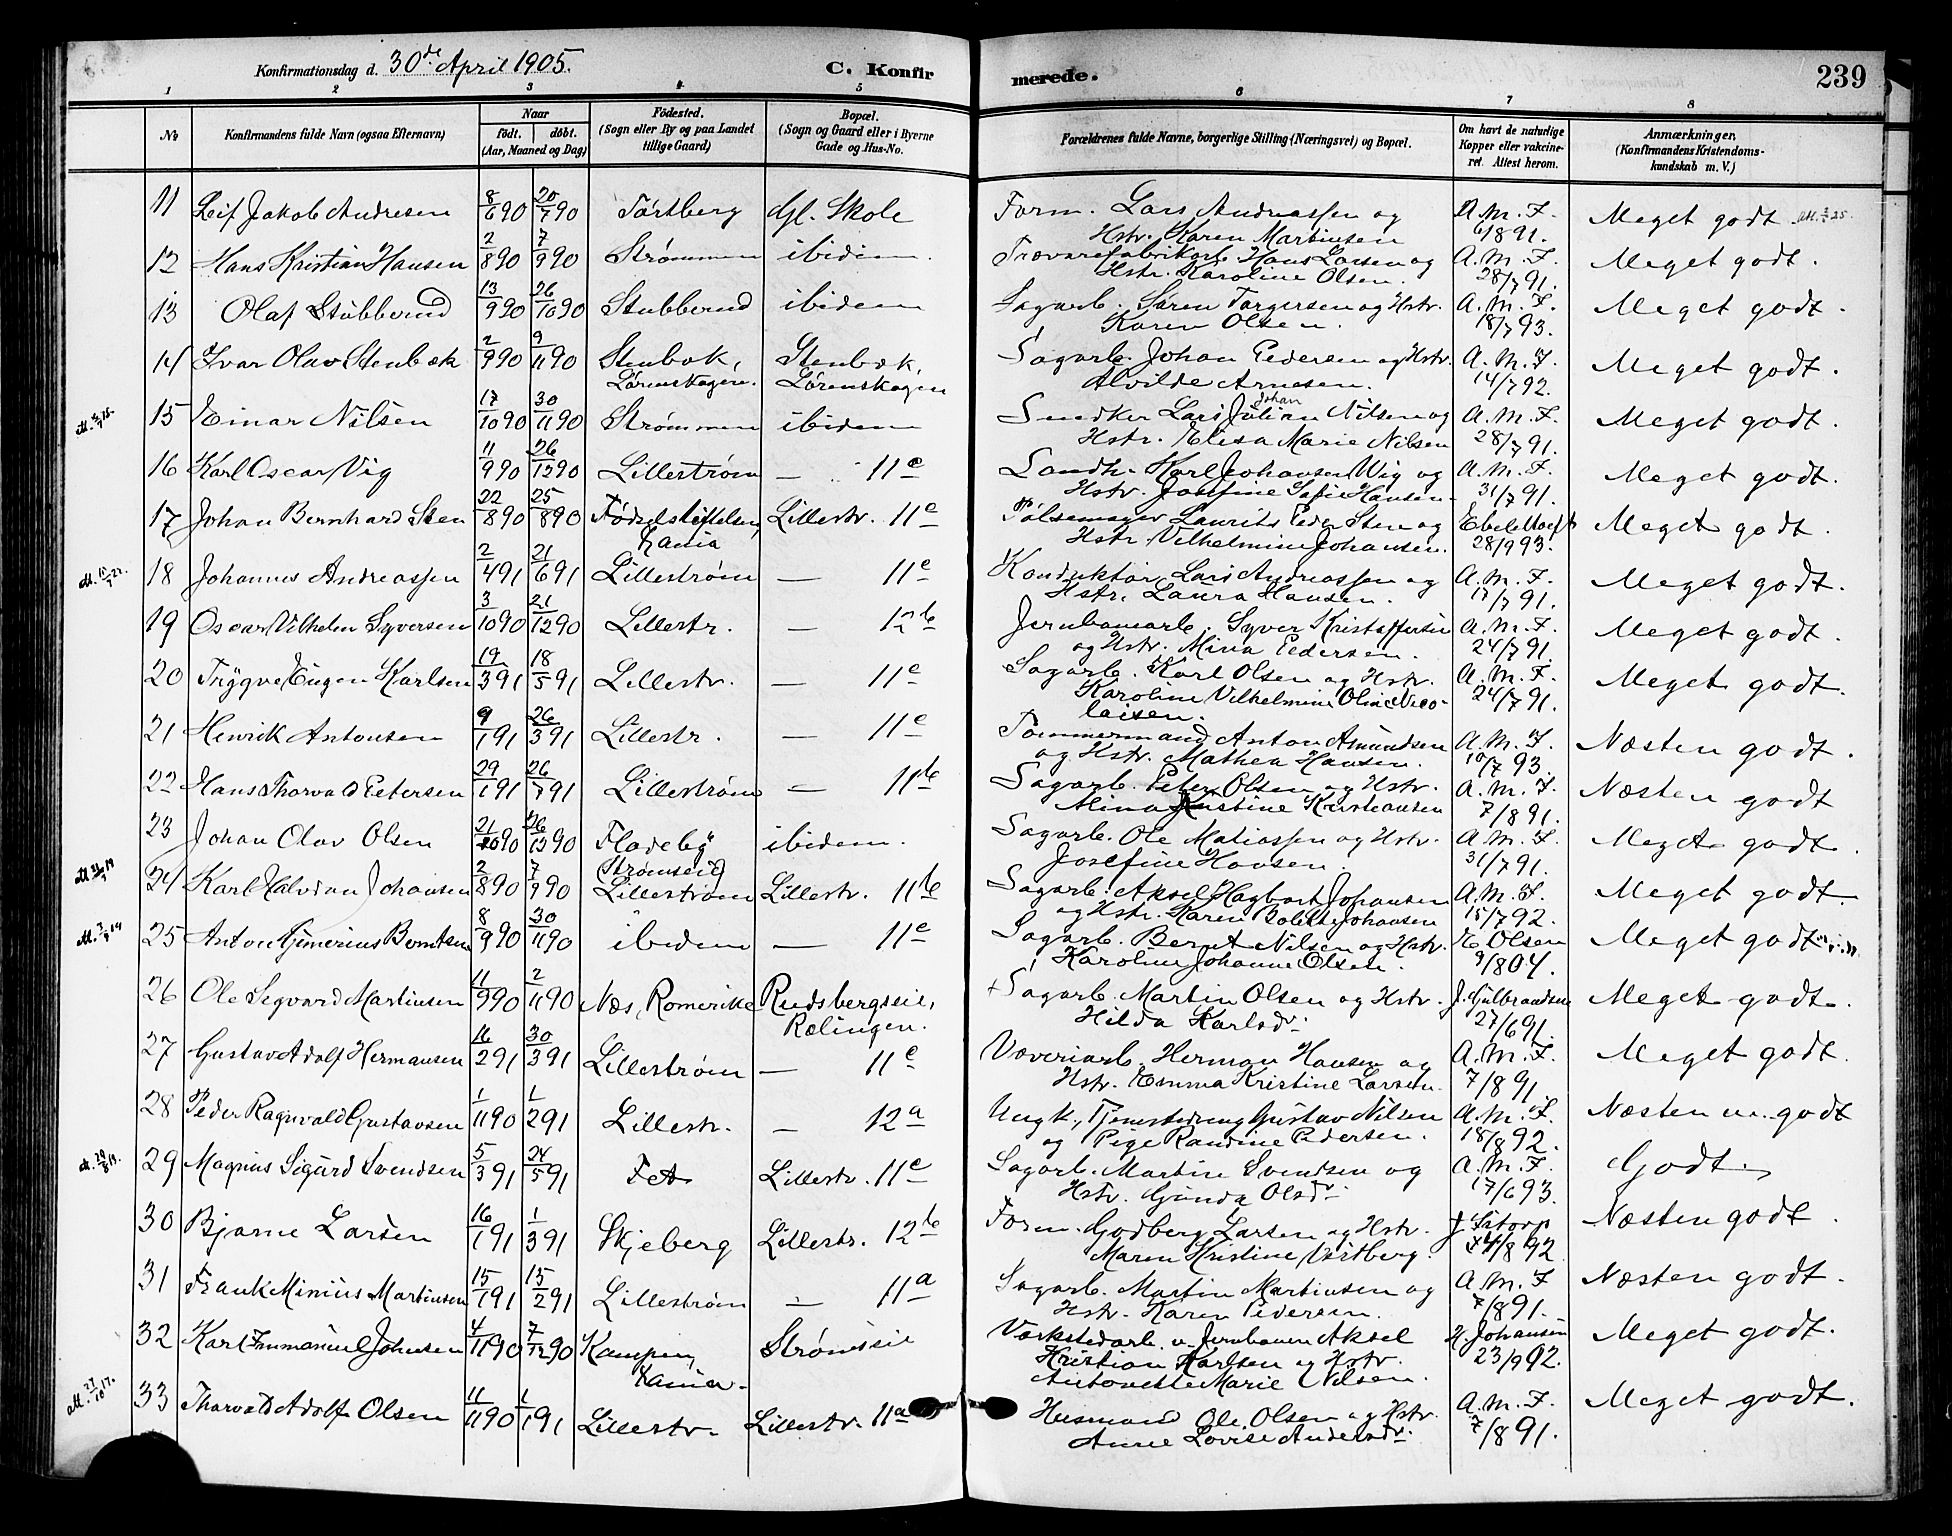 Konfirmationsdag d. 30de April 1905.
C. Konfirmerede.
239
1 2 3 4 5 6 7 8
No
Konfirmandens fulde Navn (ogsaa Efternavn)
Naar
født. døbt.
(Aar, Maaned og Dag)
Fødested.
(Sogn eller By og paa Landet
tillige Gaard)
Bopæl.
(Sogn og Gaard eller i Byerne
Gade og Hus-No.
Forældrenes fulde Navne, borgerlige Stilling (Næringsvei) og Bopæl.
Om havt de naturlige
Kopper eller vakcine-
ret. Attest herom.
Anmærkninger.
(Konfirmandens Kristendoms-
kundskab m. V.)
11 Leif Jakob Andresen 8/6 90 20/7 90 Tærtberg Gl. Skole Form. Lars Andreassen og A. M. F. Meget godt
Hstr. Karen Martinsen 6/8 91.
12 Hans Kristian Hansen 2/8 90 7/9 90 Strømmen ibidem. Trævarefabrikarb. Hans Larsen og A. M. F. Meget godt.
Hstr. Karoline Olsen. 28/7 91.
13 Olaf Stubberud 13/9 90 26/10 90 Stubberud ibidem Sagarb. Søren Torgersen og Hstr. A. M. F. Meget godt.
Karen Olsen. 18/7 93.
14 Ivar Olav Stenbæk 2/9 90 9/11 90 Stenbæk, Stenbæk, Sagarb. Johan Pedersen og Hstr. A. M. F. Meget godt.
Lørenskogen. Lørenskogen Alvilde Arnesen. 14/7 92.
15 Einar Nilsen 17/10 90 30/11 90 Strømmen ibidem Snedker Lars Johan Julian Nilsen og A. M. F. Meget godt.
Hstr. Elisa Marie Nilsen 28/7 91.
16 Karl Oscar Vig 11/9 90 26/12 90 Lillestrøm — 11e Landh. Karl Johansen Wig og A. M. F. Meget godt.
Hstr. Josefine Sofie Hansen. 31/7 91.
17 Johan Bernhard Sten 22/8 90 25/8 90 Fødselsstiftelsen, Lillestr. 11e Pølsemager Laurits Peder Sten og Ebeltoft Meget godt.
Kania Hstr. Vilhelmine Johansen. 28/9 93.
18 Johannes Andreassen 2/4 91 21/6 91 Lillestrøm — 11e Konduktør Lars Andreassen og A. M. F. Meget godt.
Hstr. Laura Hansen. 17/7 91.
19 Oscar Vilhelm Syversen 3/10 90 21/12 90 Lillestr. — 12b Jernbanearb. Syver Kristoffersen A. M. F. Meget godt.
og Hstr. Mina Pedersen. 24/7 91.
20 Trygve Eugen Karlsen 19/3 91 18/5 91 Lillestr. — 11e Sagarb. Karl Olsen og Hstr. A. M. F. Meget godt.
Karoline Vilhelmine Oline Nico- 24/7 91.
laisen.
21 Henrik Antonsen 9/1 91 26/3 91 Lillestr. — 11e Tømmermand Anton Amundsen A. M. F. Næsten godt.
og Hstr. Mathea Hansen. 10/7 93.
22 Hans Thorvald Petersen 29/1 91 26/7 91 Lillestrøm — 11b Sagarb. Peter Olsen og Hstr. A. M. F. Næsten godt
Mina Justine Kristiansen 7/8 91.
23 Johan Olav Olsen 21/10 90 26/12 90 Fladeby ibidem. Sagarb. Ole Matiassen og Hstr. A. M. F. Meget godt.
Josefine Hansen. 31/7 91.
24 Karl Halvdan Johansen 2/8 90 7/9 90 Strømseie Lillestrøm Lillestr. 11b Sagarb. Aksel Hagbart Johansen A. M. F. Meget godt.
og Hstr. Karen Bolette Johansen 15/7 92.
25 Anton Gunerius Berntsen 8/9 90 30/11 90 ibidem — 11e Sagarb. Bernt Nilsen og Hstr. E Olsen Meget godt
Karoline Johanne Olsen. 9/8 04.
26 Ole Segvard Martinsen 11/9 90 2/11 90 Næs, Romerike Rudsbergseie, Sagarb. Martin Olsen og Hstr. J. Gulbrandsen Meget godt.
Rælingen. Hilda Karlsdr. 27/6 91.
27 Gustav Adolf Hermansen 16/2 91 30/3 91 Lillestrøm — 11e Væveriarb. Herman Hansen og A. M. F. Meget godt.
Hstr. Emma Kristine Larsen. 7/8 91.
28 Peder Ragnvald Gustavsen 1/11 90 1/2 91 Lillestr. — 12a Ungk., Tjenestedreng Gustav Nilsen A. M. F. Næsten m. godt
og Pige Randine Pedersen. 18/8 92.
29 Magnus Sigurd Svendsen 5/3 91 24/5 91 Fet Lillestr. 11e Sagarb. Martin Svendsen og A. M. F. Godt.
Hstr. Gunda Olsdr. 17/6 93.
30 Bjarne Larsen 16/1 91 1/3 91 Skjeberg Lillestr. 12b Form. Godberg Larsen og Hstr. J. Storp Næsten godt.
Maren Kristine Vestberg. 24/8 92
31 Frank Minius Martinsen 15/1 91 15/2 91 Lillestrøm — 11a Sagarb. Martin Martinsen og A. M. F. Næsten godt.
Hstr. Karen Pedersen. 7/8 91.
32 Karl Immanuel Johnsen 4/11 90 7/12 90 Kampen, Strømseie Værkstedarb. v. Jernbanen Aksel H. Johansen Meget godt.
Kania. Kristian Karlsen og Hstr. 23/9 92.
Antonette Marie Nilsen.
33 Thorvald Adolf Olsen 11/11 90 1/1 91 Lillestr. Lillestr. 11a Husmand Ole Olsen og Hstr. A. M. F. Meget godt.
Anne Lovise Andersdr. 7/8 91.